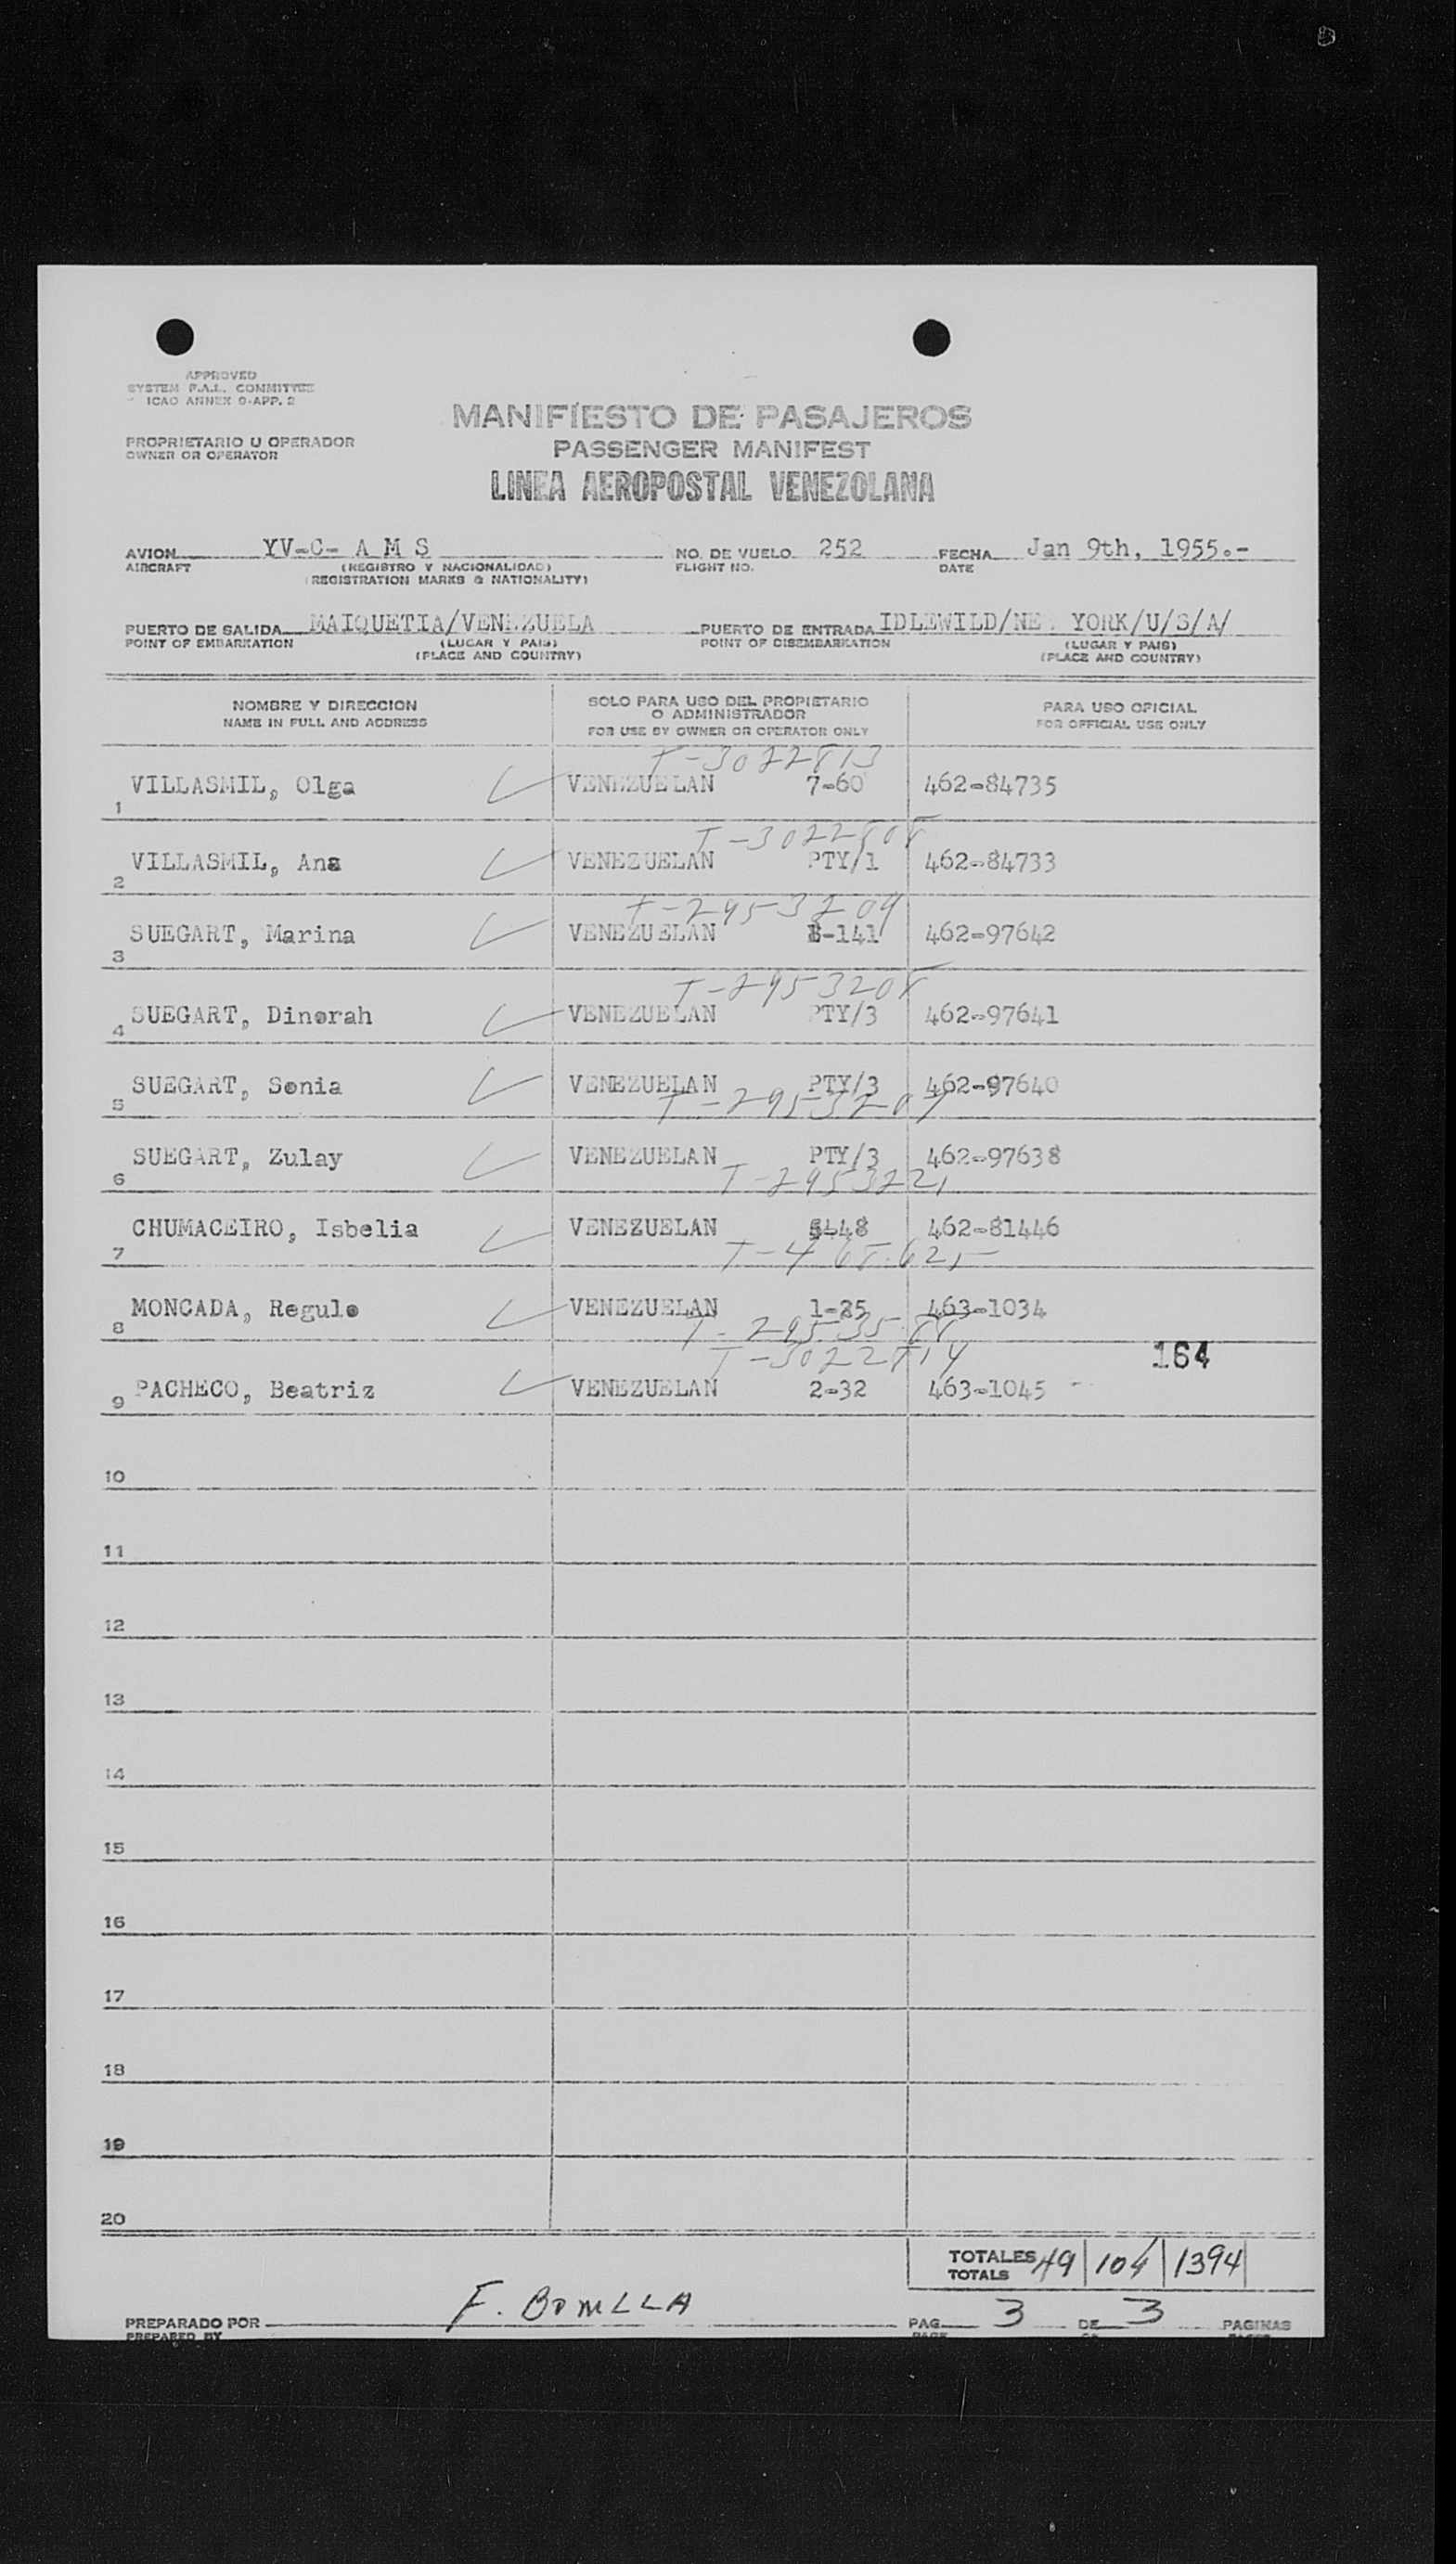 APPROVED
SYSTEM F.A.L. COMMITTEE
ICAO ANNEX 9-APP. 2
MANIFIESTO DE PASAJEROS
PROPRIETARIO U OPERADOR
OWNER OR OPERATOR
PASSENGER MANIFEST
LINEA AEROPOSTAL VENEZOLANA
AVION YV-C- A M S NO. DE VUELO 252 FECHA Jan 9th, 1955.-
AIRCRAFT (REGISTRO Y NACIONALIDAD) FLIGHT NO. DATE
(REGISTRATION MARKS & NATIONALITY)
PUERTO DE SALIDA MAIQUETIA/VENEZUELA PUERTO DE ENTRADA IDLEWILD/NE YORK/U/S/A/
POINT OF EMBARKATION (LUGAR Y PAIS) POINT OF DISEMBARKATION (LUGAR Y PAIS)
(PLACE AND COUNTRY) (PLACE AND COUNTRY)
NOMBRE Y DIRECCION SOLO PARA USO DEL PROPIETARIO O ADMINISTRADOR PARA USO OFICIAL
NAME IN FULL AND ADDRESS FOR USE BY OWNER OR OPERATOR ONLY FOR OFFICIAL USE ONLY
T-3022813
1 VILLASMIL, Olga VENEZUELAN 7-60 462-84735
T-3022808
2 VILLASMIL, Ana VENEZUELAN PTY/1 462-84733
T-2953209
3 SUEGART, Marina VENEZUELAN -141 462-97642
T-2953208
4 SUEGART, Dinorah VENEZUELAN PTY/3 462-97641
5 SUEGART, Sonia VENEZUELAN PTY/3 462-97640
T-2953207
6 SUEGART, Zulay VENEZUELAN PTY/3 462-97638
T-2953221
7 CHUMACEIRO, Isbelia VENEZUELAN 462-81446
8 MONCADA, Regulo VENEZUELAN 1-25 463-1034
T-3022814
164
9 PACHECO, Beatriz VENEZUELAN 2-32 463-1045
10
11
12
13
14
15
16
17
18
19
20
TOTALES 49 104 1394
TOTALS
F. BONILLA
PREPARADO POR PAG. 3 DE 3 PAGINAS
PREPARED BY